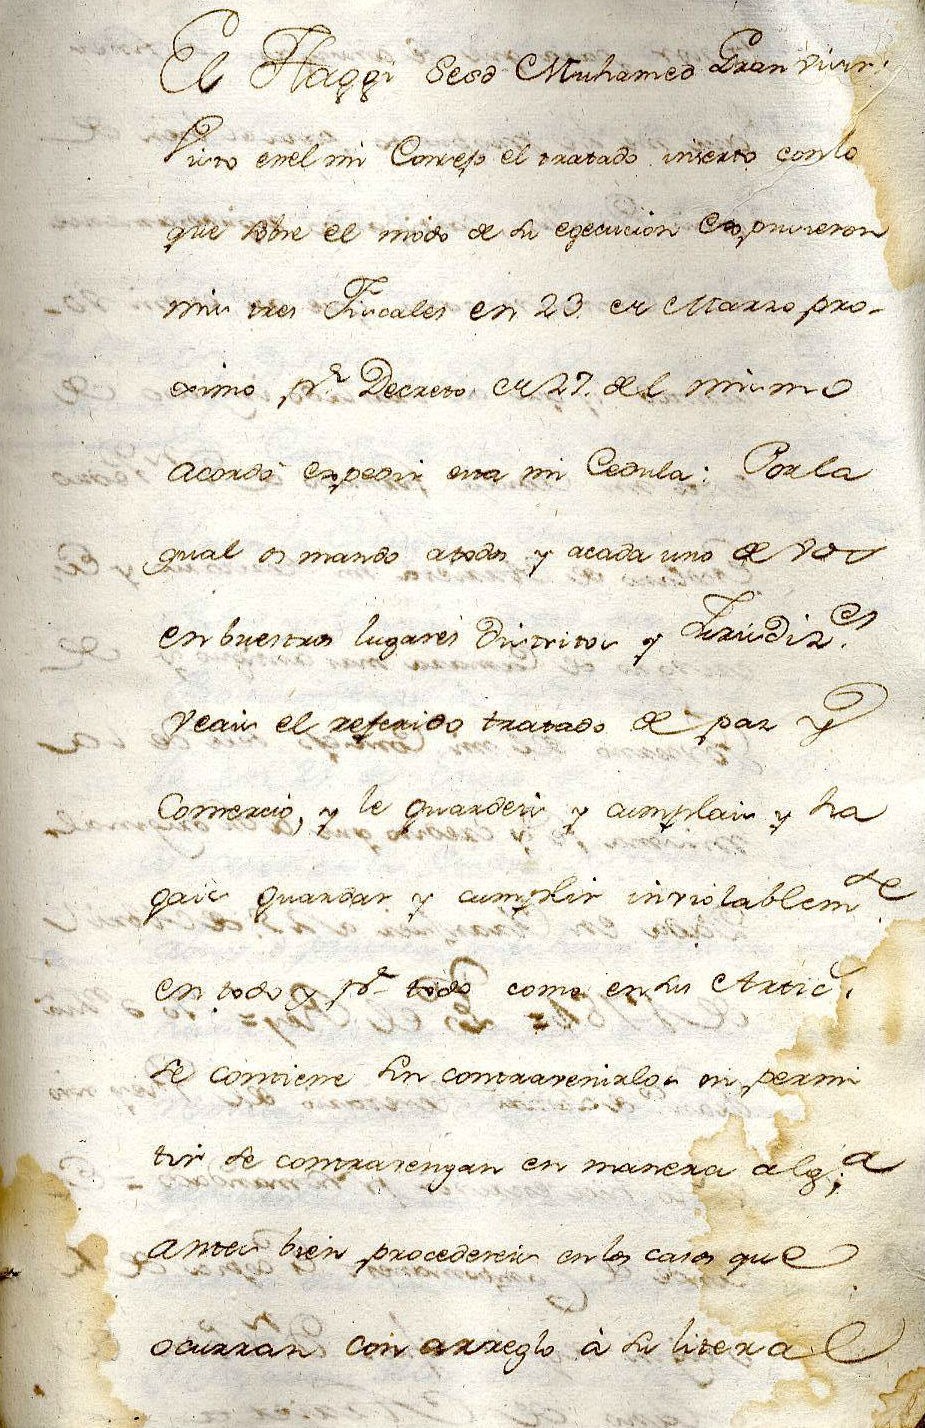 El Haggi Seid Muhamed Gran Visir.
Visto en el mi Consejo el tratado inserto con lo
que sobre el modo de su egecucion expusieron
mis tres Fiscales en 23. de Marzo pro-
ximo pr. Decreto de 27. del mismo
acordó expedir esta mi Cedula: Por la
qual os mando a todos y a cada uno de vos
en buestros lugares distritos y Jurisdizes.
veais el referido tratado de paz y
Comercio, y le guardeis y cumplais y ha
gais guardar y cumplir inviolablemte
en todo y pr. todo como en sus Artics.
se contiene sin contravenirlos ni permi
tir se contravengan en manera alga;
antes bien procedereis en los casos que
ocurran con arreglo à su literal